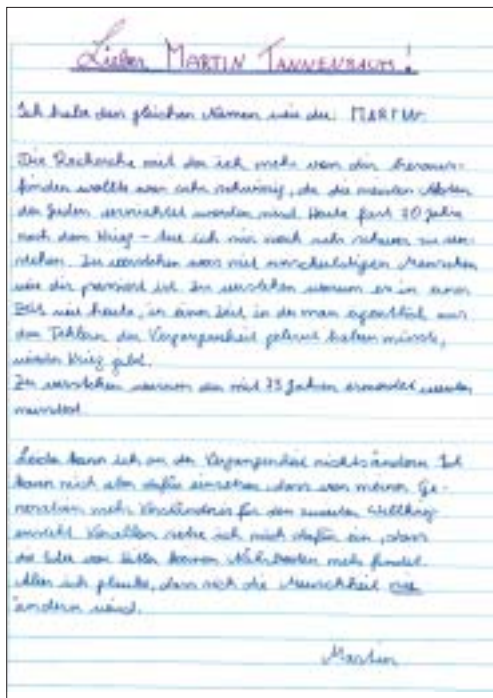 Lieber MARTIN TANNENBAUM!
Ich habe den gleichen Namen wie du: MARTIN.
Die Recherche mit der ich mehr von dir heraus-
finden wollte war sehr schwierig, da die meisten Akten
der Juden vernichtet worden sind. Heute fast 70 Jahre
nach dem Krieg - tue ich mir noch sehr schwer zu ver-
stehen. Zu verstehen was mit unschuldigen Menschen
wie dir passiert ist. Zu verstehen warum es in einer
Zeit wie heute, in einer Zeit in der man eigentlich aus
den Fehlern der Vergangenheit gelernt haben müsste,
wieder Krieg gibt.
Zu verstehen warum du mit 73 Jahren ermordet werden
musstest.
Leider kann ich an der Vergangenheit nichts ändern. Ich
kann mich aber dafür einsetzen, dass von meiner Ge-
neration mehr Verständnis für den zweiten Weltkrieg
Vorallem setze ich mich dafür ein, dass
die Idee von Hitler keinen Nährboden mehr findet.
Aber ich glaube, dass sich die Menschheit nie
ändern wird.
Martin